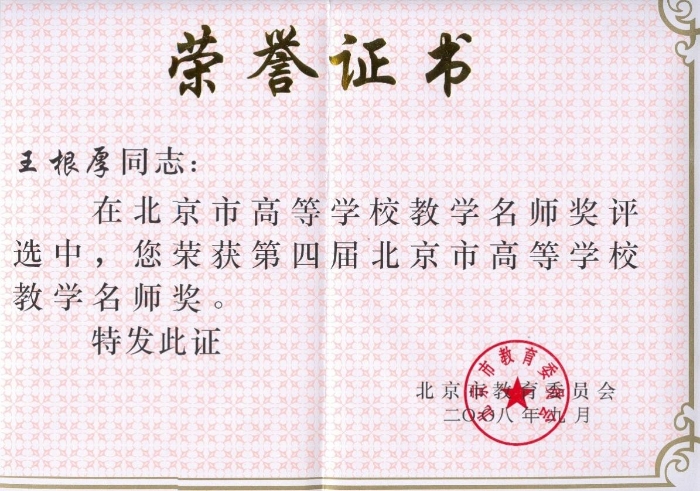 荣誉证书
王根厚同志：
在北京市高等学校教学名师奖评
选中，您荣获第四届北京市高等学校
教学名师奖。
特发此证
北京市教育委员会
北京市教育委员会
二〇〇八年九月